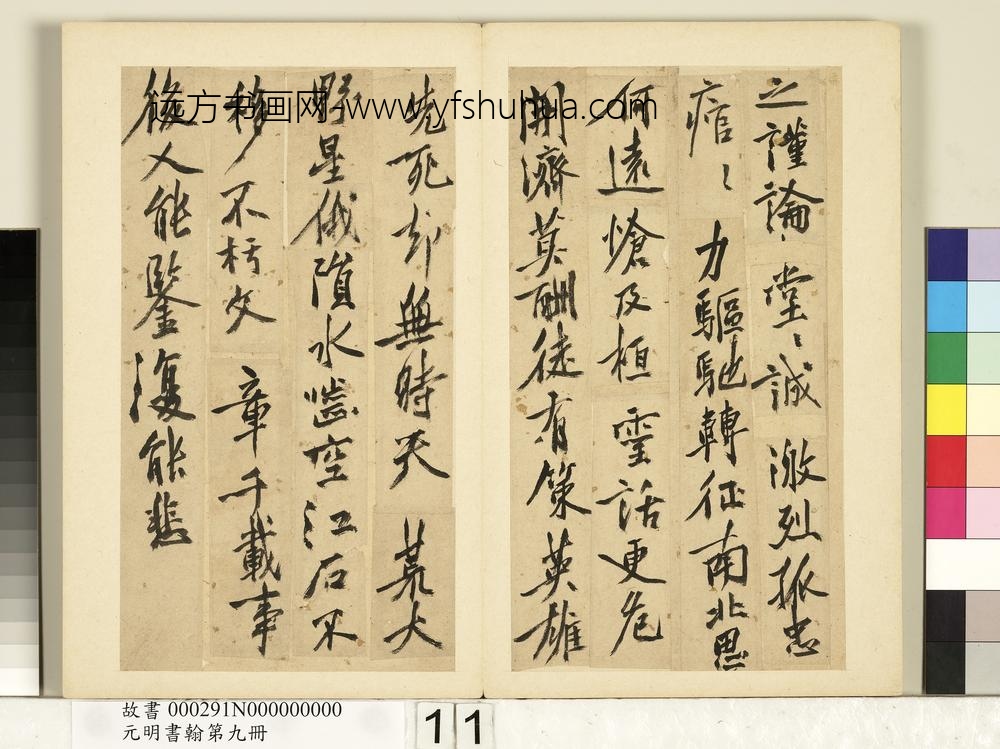 之謹論堂〻誠激烈孤忠
痯〻力驅馳轉征南北思
何遠愴及桓靈話更危
開濟莫酬徒有策英雄
先死却無時天荒大
野星俄隕水嚙空江石不
移不朽文章千載事
後人能鑒復能悲
远方书画网 www.yfshuhua.com
故書 000291N000000000
元明書翰第九冊
11